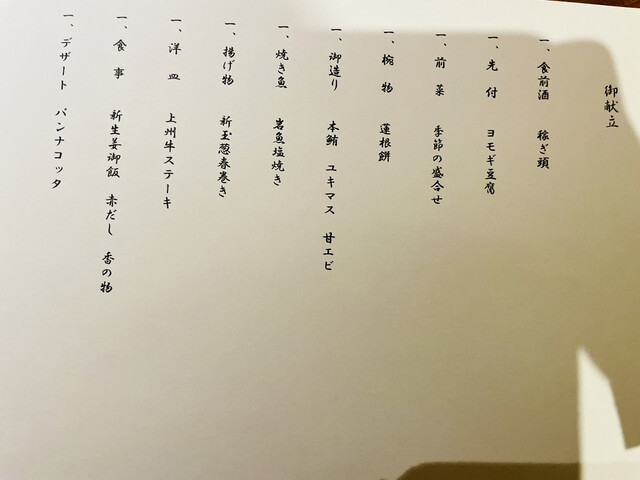 御献立
一、食前酒 稼ぎ頭
一、先付 ヨモギ豆腐
一、前菜 季節の盛合せ
一、椀物 蓮根餅
一、御造り 本鮪 ユキマス 甘エビ
一、焼き魚 岩魚塩焼き
一、揚げ物 新玉葱春巻き
一、洋皿 上州牛ステーキ
一、食事 新生姜御飯 赤だし 香の物
一、デザート パンナコッタ